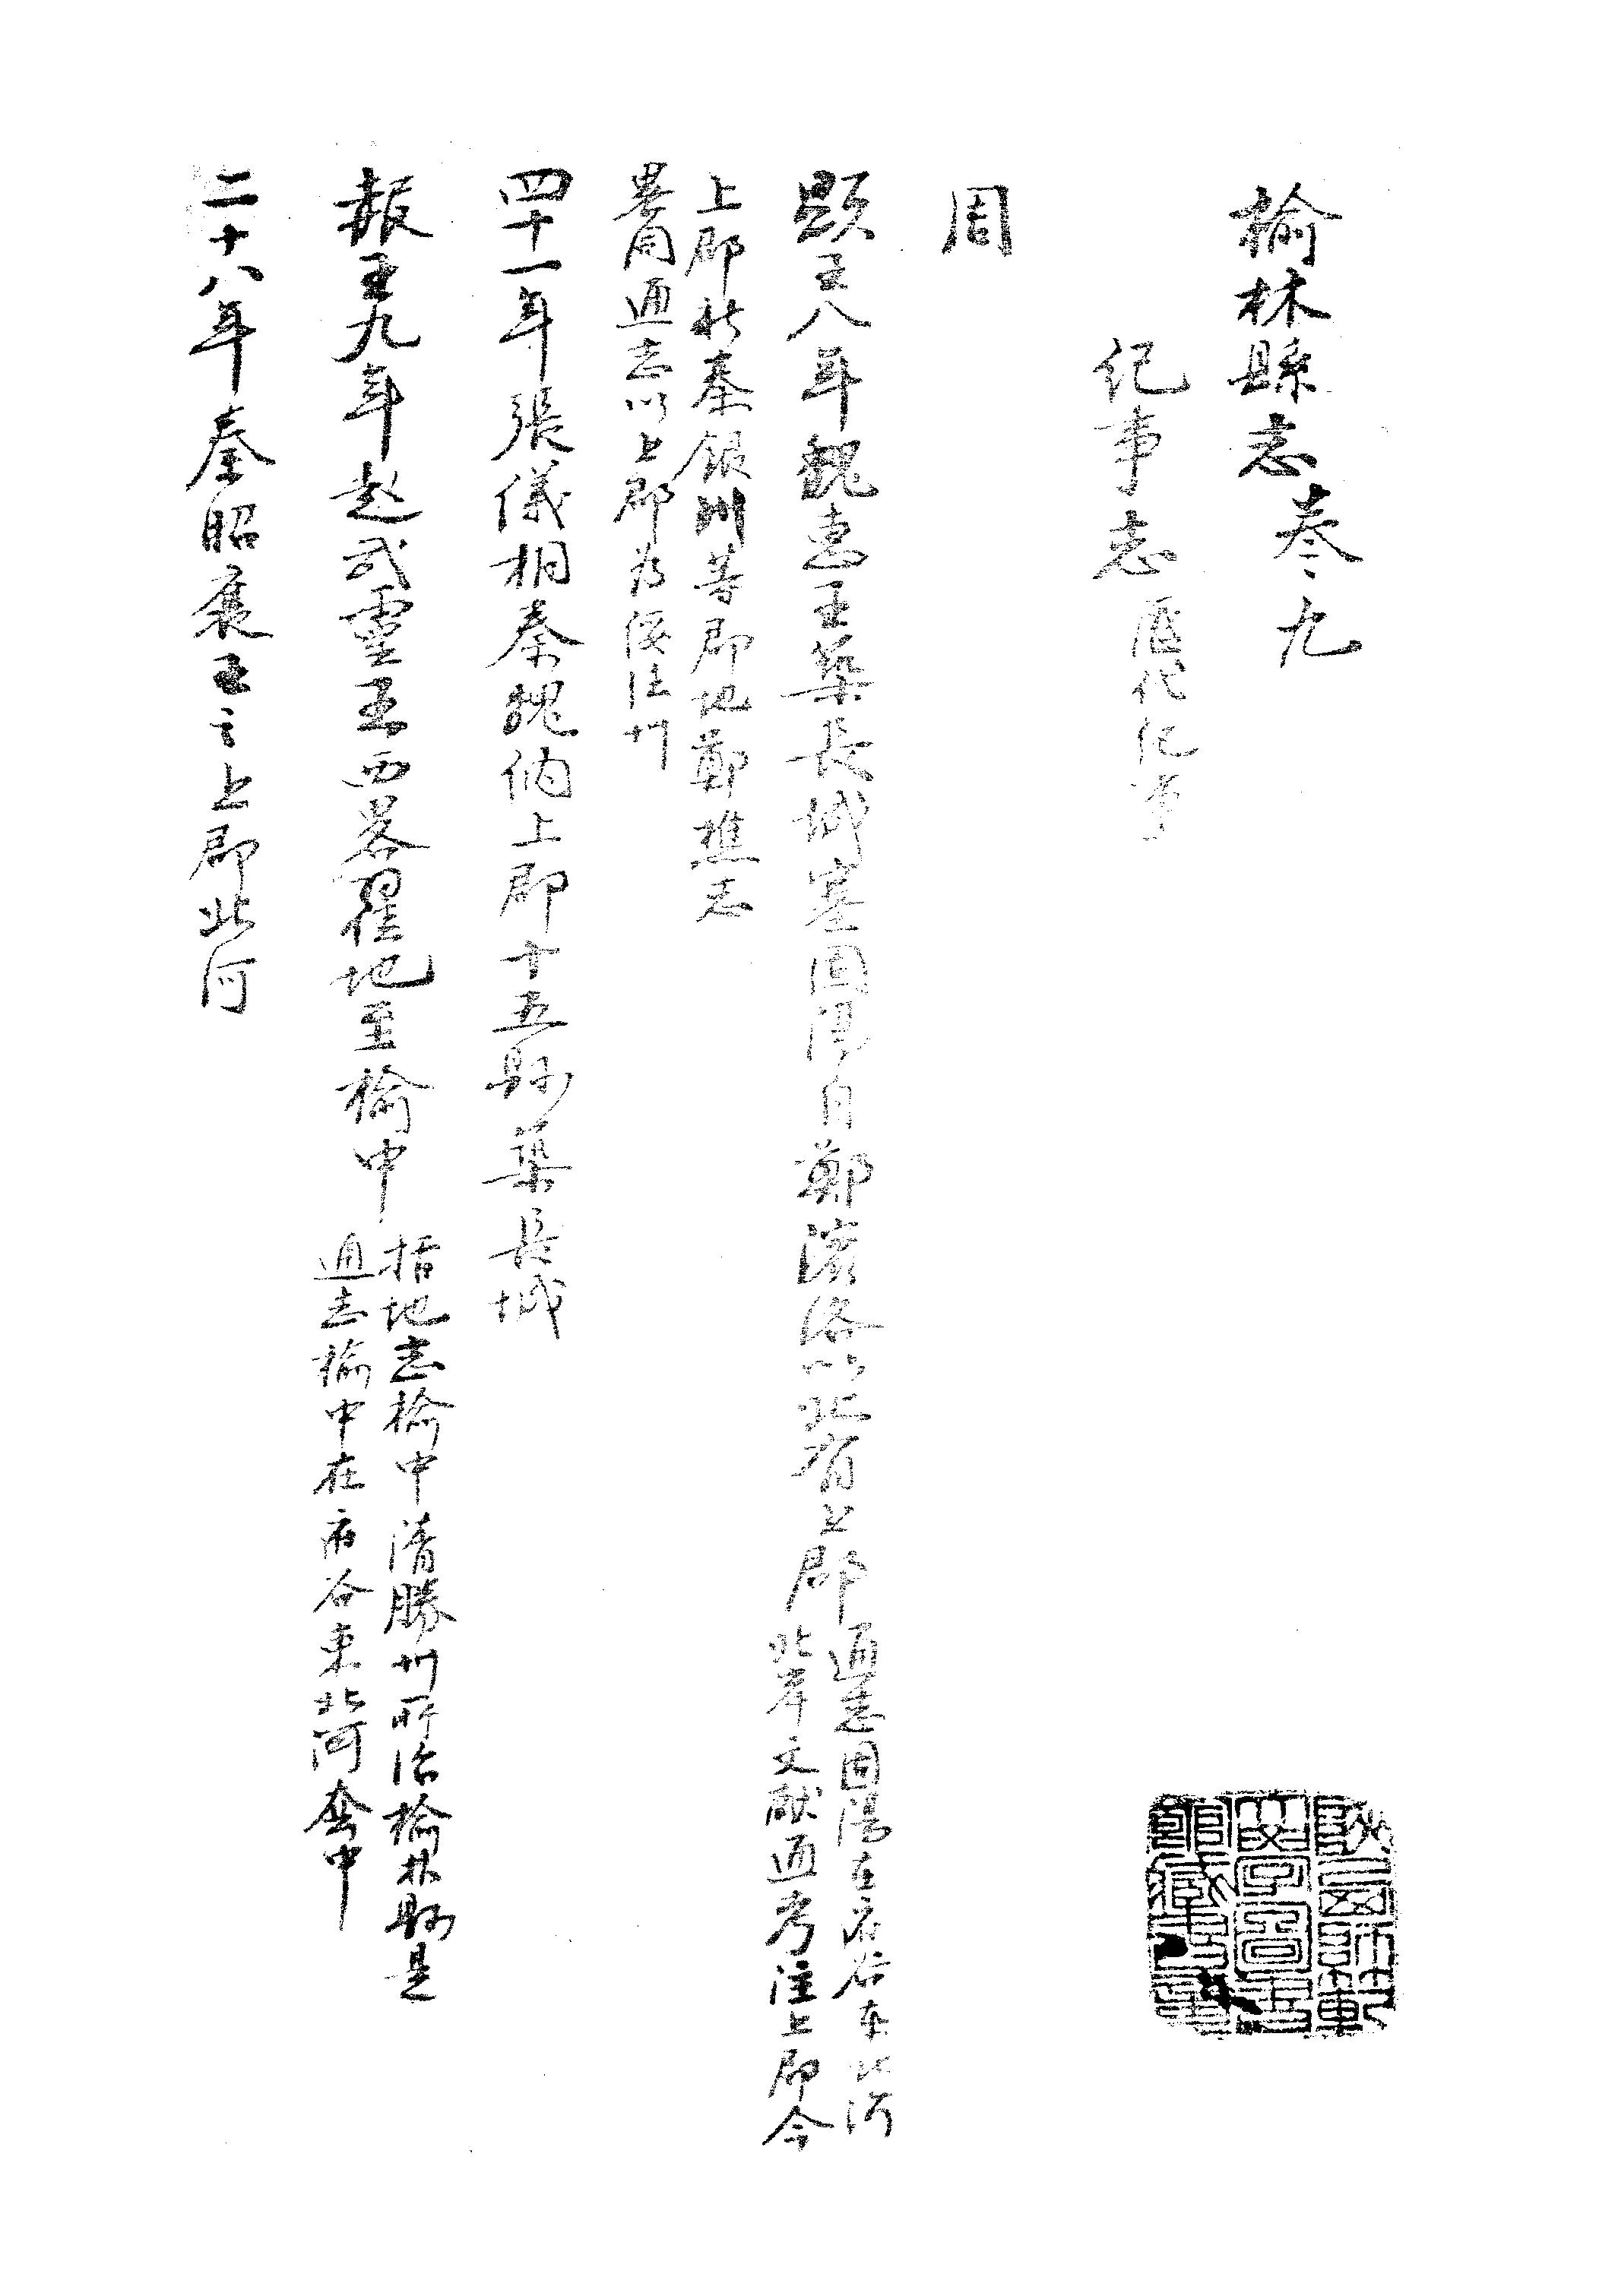 榆林縣志卷之九
紀事志 歷代紀事
周
顯王八年魏惠王築長城塞固陽自鄭濱洛以北有上郡 通志固陽在府谷東北河
北岸文獻通考注上郡今
上郡於秦銀州等郡地鄭樵志
畧同通志以上郡為綏德州
四十一年張儀相秦魏納上郡十五縣築長城
赧王九年趙武靈王西畧翟地至榆中 括地志榆中清勝州所治榆林縣是
通志榆中在府谷東北河套中
二十八年秦昭襄王之上郡北河
陝西師範
大學圖書
館藏書章